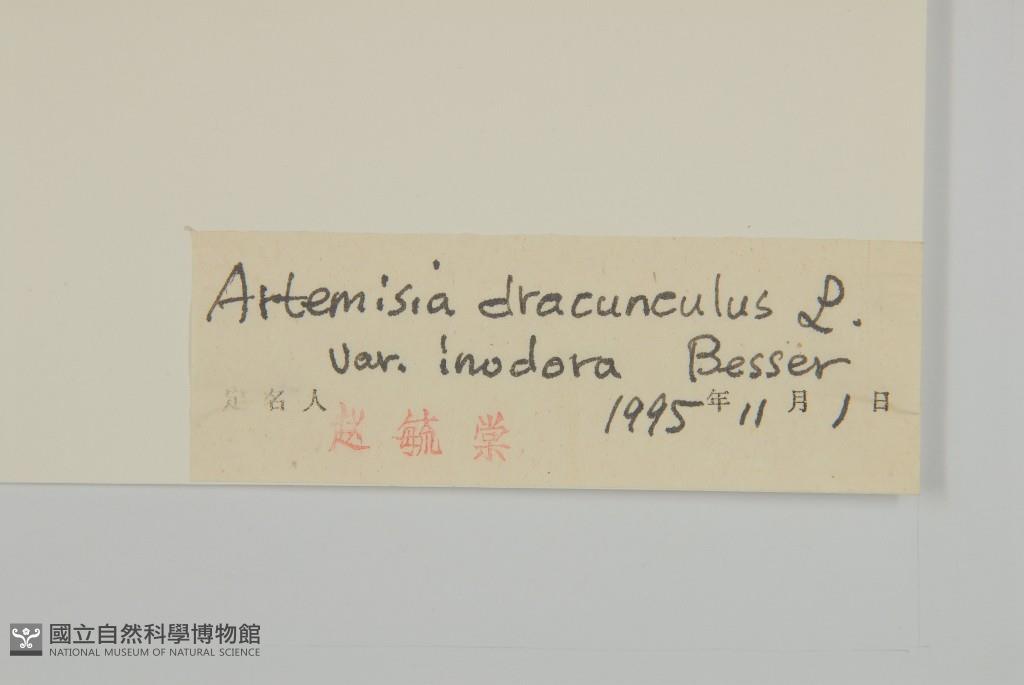 Artemisia dracunculus L.
var. inodora Besser
定名人 赵毓棠 1995年11月1日
國立自然科學博物館
NATIONAL MUSEUM OF NATURAL SCIENCE